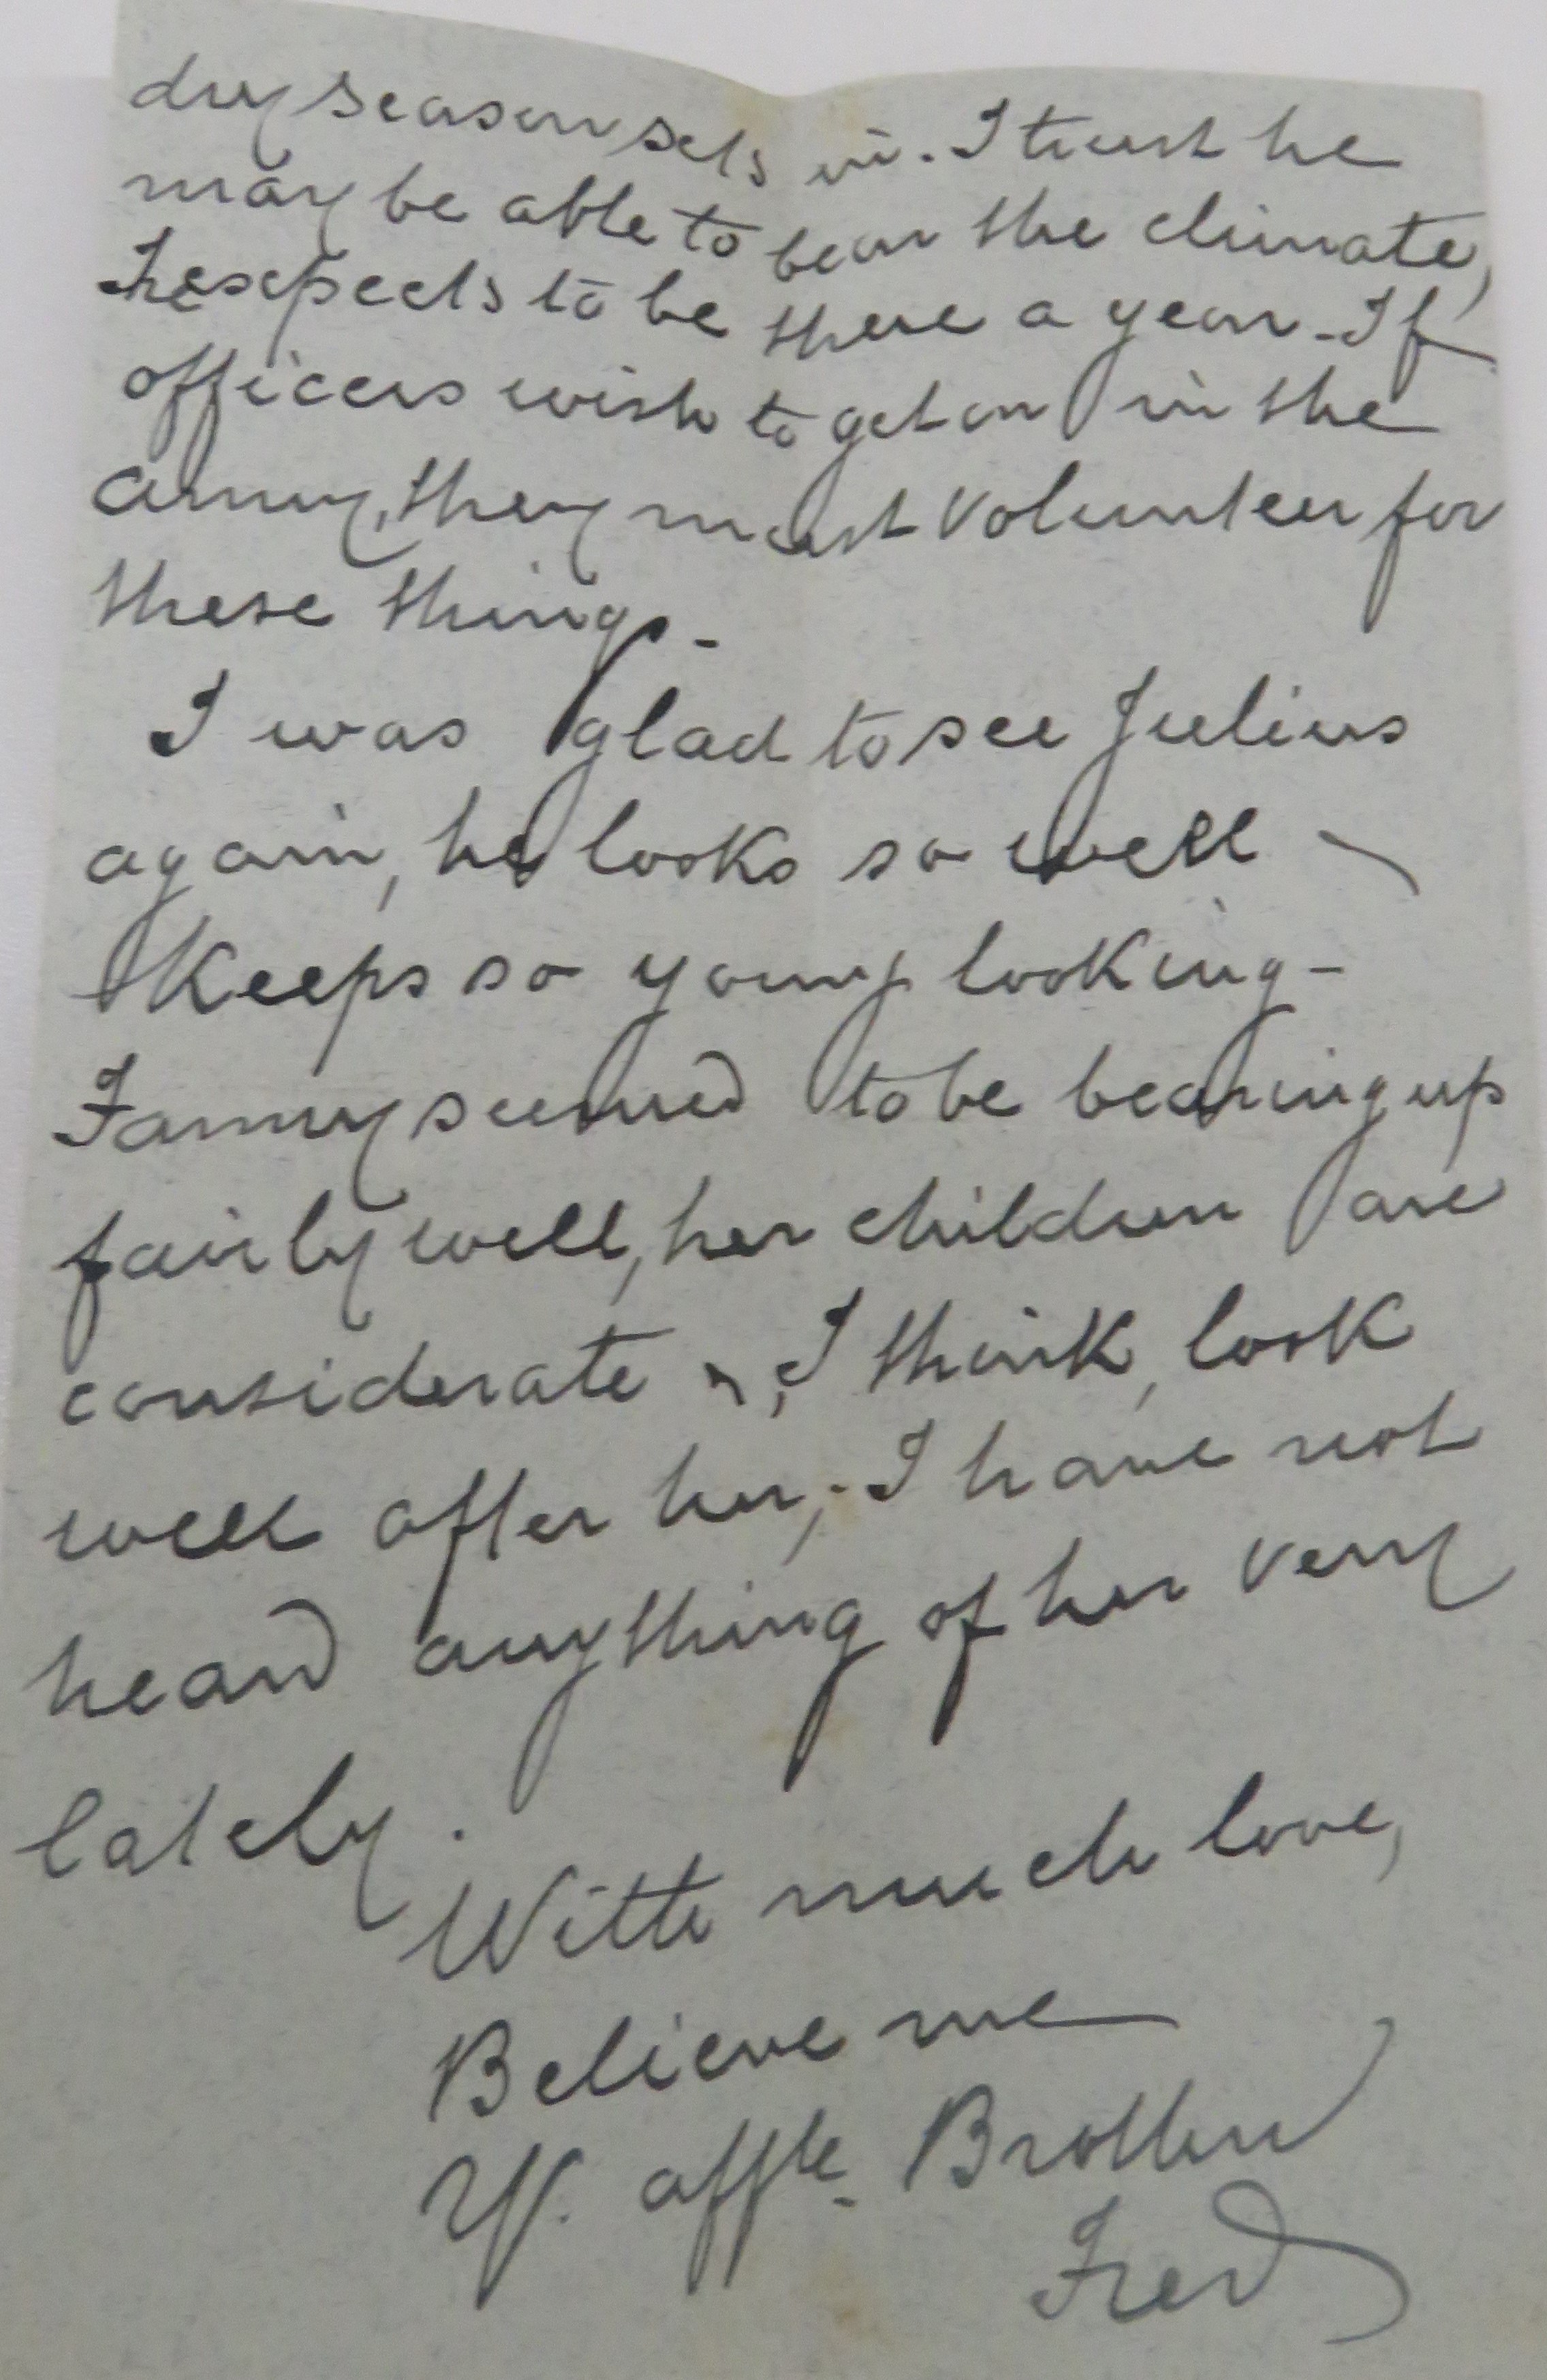 dry season sets in. I trust he
may be able to bear the climate,
he expects to be there a year - If
officers wish to get on in the
army, they must volunteer for
these things -
I was glad to see Julius
again, he looks so well &
Keeps so young looking -
Fanny seemed to be bearing up
fairly well, her children are
considerate &, I think, look
well after her; - I have not
heard anything of her very
lately.
With much love,
Believe me
Yr. affte. Brother
Fred